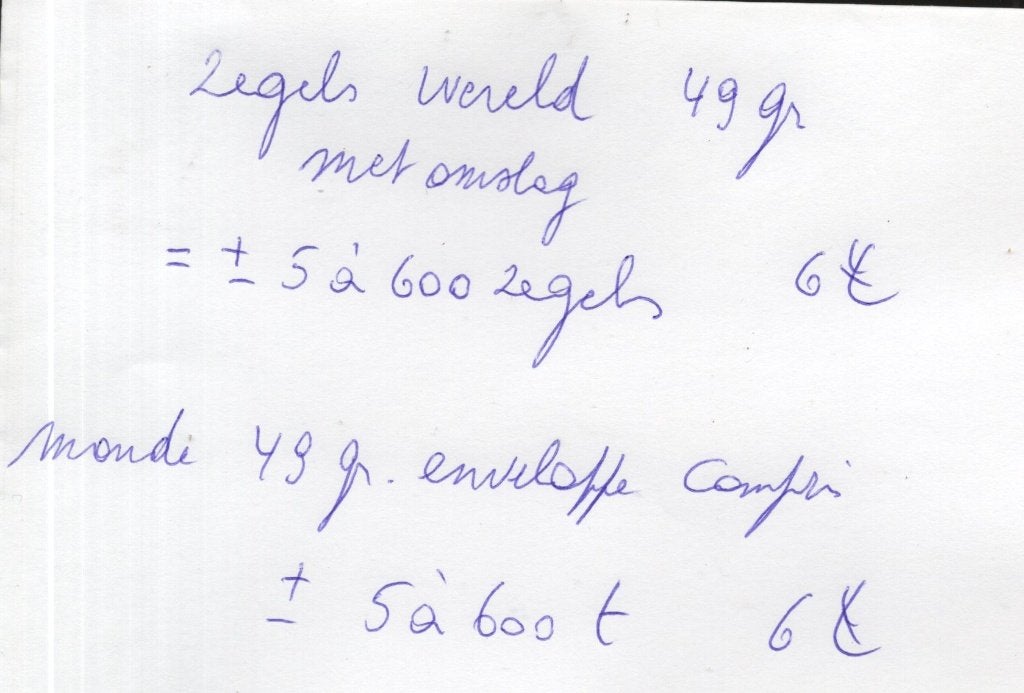 zegels wereld 49 gr
met omslag
= ± 5 à 600 zegels 6 €
monde 49 gr. enveloppe compris
± 5 à 600 t 6 €